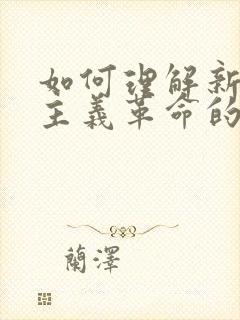 如何理解新
主义革命的
蘭澤